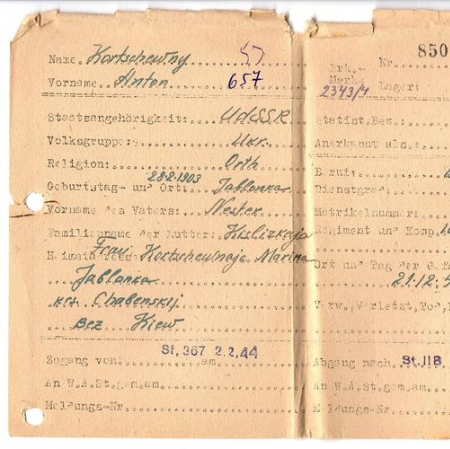 Name: Kortschewny 57
Vorname Anton 657
Staatsangehörigkeit: UdSSR
Volksgruppe: Ukr.
Religion: Orth
28-2-1903
Geburtstag- und Ort: Jablonka
Vorname des Vaters: Nester
Familienname der Mutter: Kislizkaja
Frau Kortschewnaja Marina
Jablonka
Chabenskij
Bez Kiew
St. 367 2.2.44
Zugang von: am
An W.A.St.gem.am
Meldungs-Nr.
Nr. 850
Erk.-
Mark. Lager:
2343/4
Statist. Bez.:
Anerkannt als:
Beruf:
Dienstgrad:
Matrikelnummer:
Regiment und Komp.
Ort und Tag der
21.12.
Verw., Verletzt, Tod,
Abgang nach St. IIB
An W.A.St.gem.am
Meldungs-Nr.